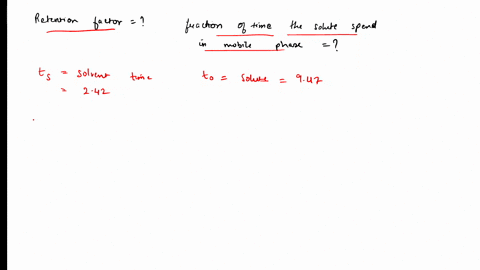 Retention factor = ?
fraction of time the solute spend
in mobile phase = ?
ts = solvent time
= 2.42
to = solute = 9.47